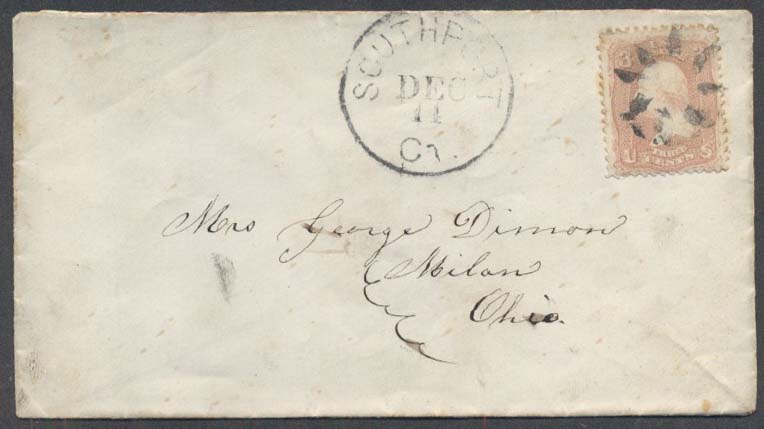 SOUTHPORT
DEC
11
Ct.
3 3
U THREE S
CENTS
Mrs George Dimon
Milan
Ohio.